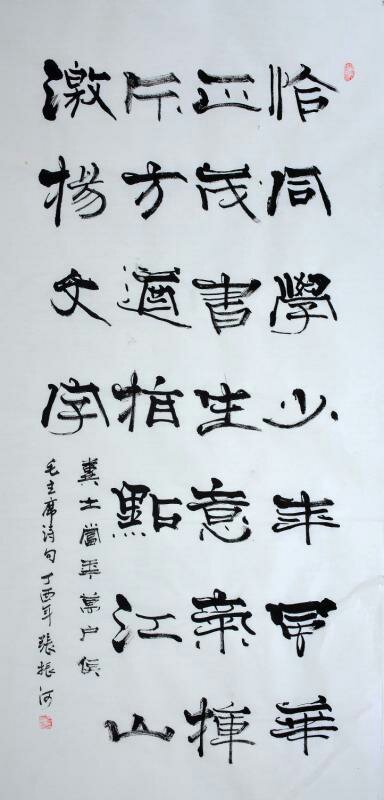 恰同學少年風華
正茂書生意氣揮
斥方遒指點江山
激揚文字
糞土當年萬户侯
毛主席诗句丁酉年張振河